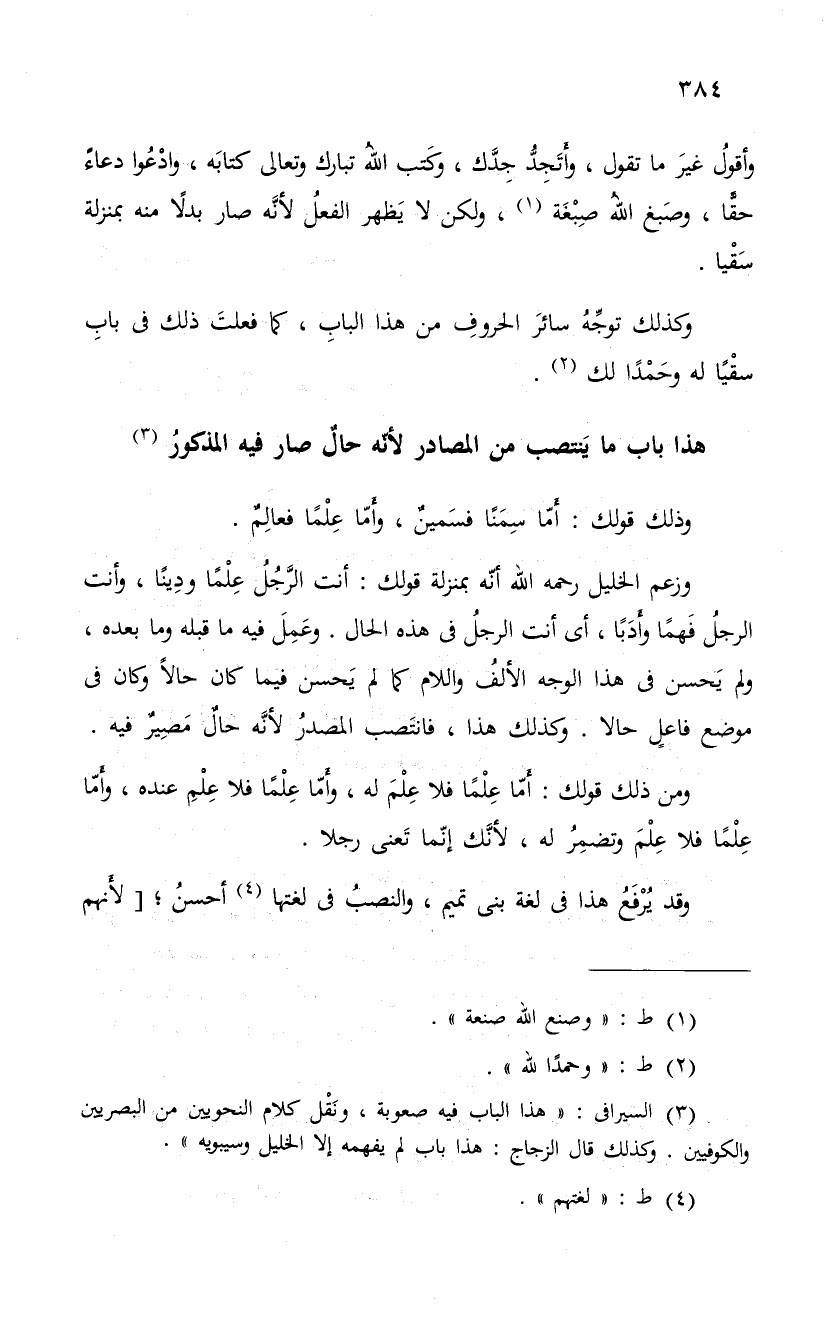 ٣٨٤
وأقولُ غيرَ ما تقول ، وأَتَجِدُّ جِدَّك ، وكَتب اللهُ تبارك وتعالى كتابَه ، وادْعُوا دعاءً
حقًّا ، وصَبغ اللهُ صِبْغَة (١) ، ولكن لا يَظهر الفعلُ لأنَّه صار بدلًا منه بمنزلة
سَقْيا .
وكذلك توجِّهُ سائرَ الحروفِ من هذا البابِ ، كما فعلتَ ذلك فى بابِ
سقْيًا له وحَمْدًا لك (٢) .
هذا باب ما يَنتصب من المصادر لأنّه حالٌ صار فيه المذكورُ (٣)
وذلك قولك : أَمّا سِمَنًا فسَمينٌ ، وأَمّا عِلْمًا فعالِمٌ .
وزعم الخليل رحمه الله أنّه بمنزلة قولك : أنت الرَّجُلُ عِلْمًا ودِينًا ، وأنت
الرجلُ فَهمًا وأَدَبًا ، أى أنت الرجلُ فى هذه الحال . وعَمِلَ فيه ما قبله وما بعده ،
ولم يَحسن فى هذا الوجه الألفُ واللام كما لم يَحسن فيما كان حالاً وكان فى
موضع فاعلٍ حالا . وكذلك هذا ، فانتَصب المصدرُ لأنَّه حالٌ مَصِيرٌ فيه .
ومن ذلك قولك : أَمّا عِلْمًا فلا عِلْمَ له ، وأَمّا عِلْمًا فلا عِلْمِ عنده ، وأَمّا
عِلْمًا فلا عِلْمَ وتضمِرُ له ، لأنَّك إنّما تَعنى رجلا .
وقد يُرْفَعُ هذا فى لغة بنى تميم ، والنصبُ فى لغتها (٤) أحسنُ ؛ [ لأَنهم
(١) ط : « وصنع الله صنعة » .
(٢) ط : « وحمدًا لله » .
(٣) السيرافى : « هذا الباب فيه صعوبة ، ونَقْل كلام النحويين من البصريين
والكوفيين . وكذلك قال الزجاج : هذا باب لم يفهمه إلا الخليل وسيبويه » .
(٤) ط : « لغتهم » .